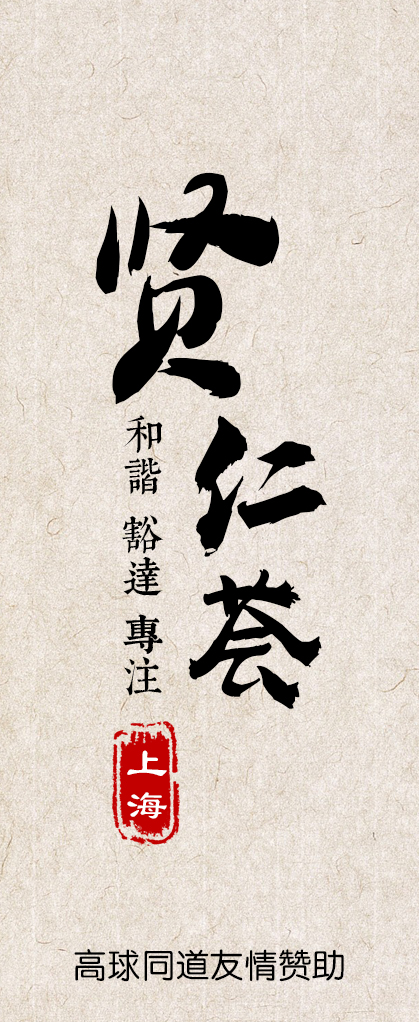 贤仁荟
和諧 豁達 專注
上海
高球同道友情赞助